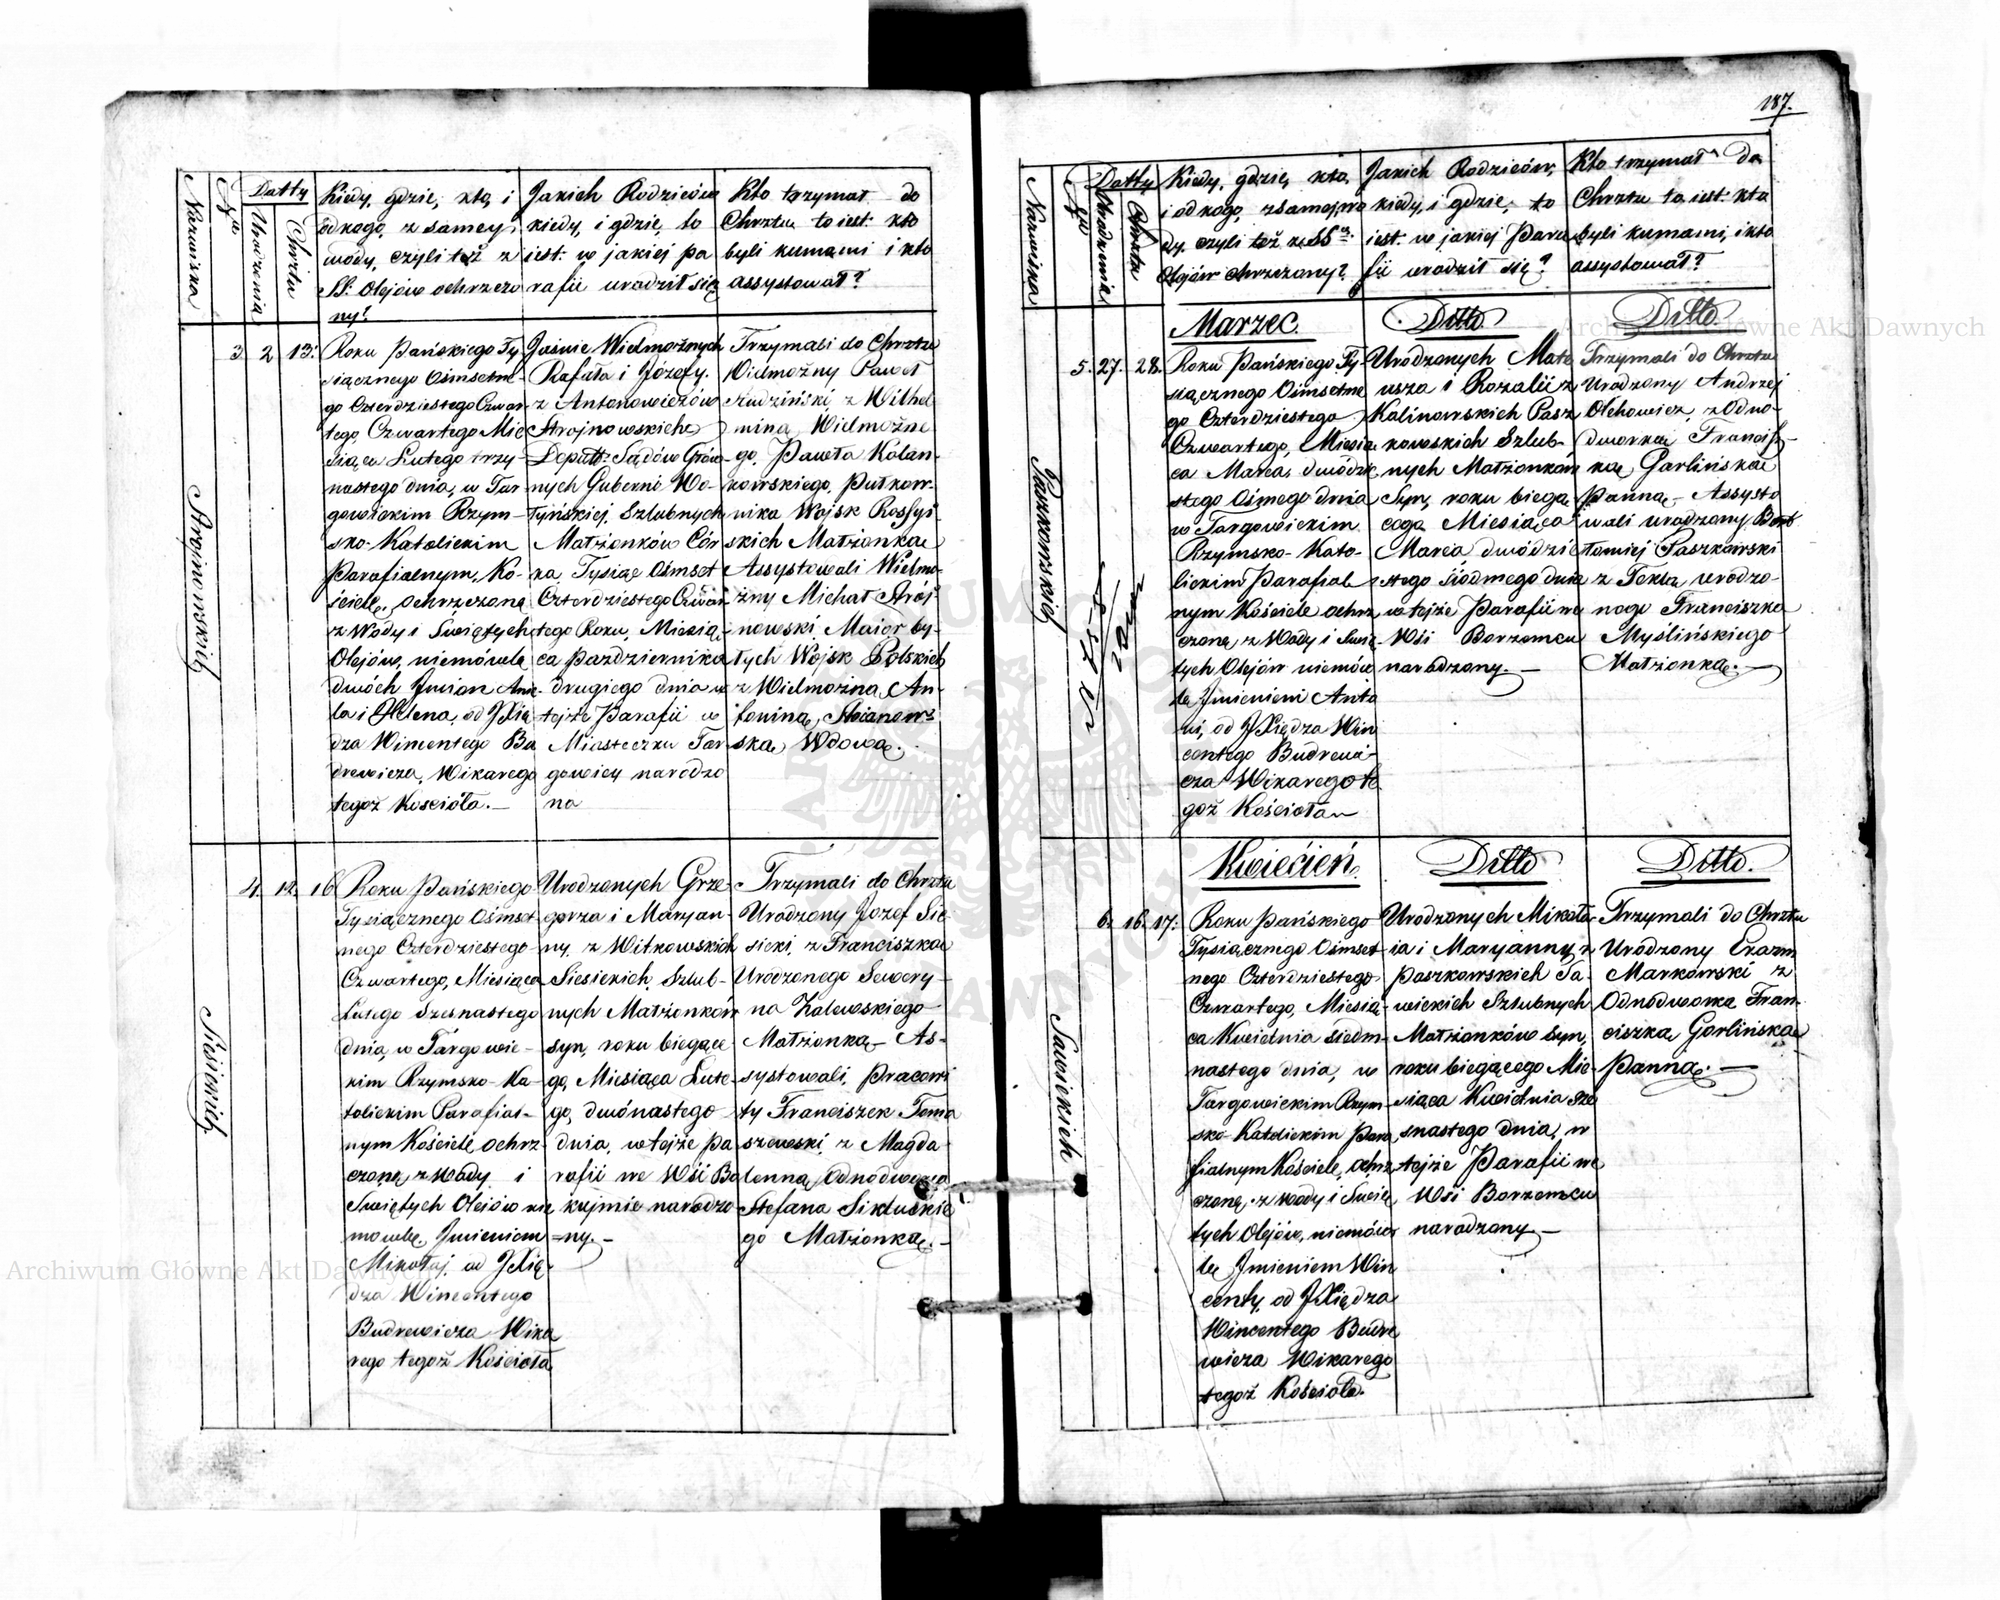 187.
Nazwiska
Nro
Datty
Urodzenia
Chrztu
Kiedy, gdzie, kto, i
od kogo, z samey
wody, czyli też z
SS: Olejów ochrzczo
ny?
Jakich Rodziców
kiedy, i gdzie, to
iest: w jakiej pa
rafii urodził się
Kto trzymał do
Chrztu, to iest: kto
byli kumami i kto
assystował?
Strojnowskich
3. 2. 13.
Roku Pańskiego Ty
siącznego Ośmsetne-
go Czterdziestego Czwar
tego, Czwartego Mie
siąca Lutego trzy-
nastego dnia, w Tar
gowickim Rzym-
sko-Katolickim
Parafialnym, Ko-
ściele, ochrzczone
z Wody i Świętych
Olejów, niemówle
dwóch Imion Anie-
la i Helena, od JXię
dza Wincentego Bu
drewicza, Wikarego
tegoż Kościoła.-
Jaśnie Wielmożnych
Rafała i Józefy.
z Antonowiczów
Strojnowskich
Deputt: Sądów Głów-
nych Guberni Wo-
łyńskiej, Szlubnych
Małżonków Cór
ka, Tysiąc Ośmset
Czterdziestego Czwar
tego Roku, Miesią-
ca Października
drugiego dnia w
tejże Parafii w
Miasteczku Tar
gowicy narodzo
na
Trzymali do Chrztu
Wielmożny Paweł
Rudziński z Wilhel
miną, Wielmożne
go, Pawła Kolan-
kowskiego, Pułkow-
nika Wojsk Rossyi
skich Małżonką
Assystowali Wielmo-
żny Michał Strój-
nowski, Maior by-
łych Wojsk Polskich
z Wielmożną An-
toniną,
ską, Wdową.-
Siesickich
4. 12. 16
Roku Pańskiego
Tysiącznego Ośmset
nego Czterdziestego
Czwartego, Miesiąca
Lutego Szesnastego
dnia, w Targowic-
kim Rzymsko-Ka-
tolickim Parafial-
nym Kościele, ochrz-
czone, z Wody i
Świętych Olejów nie
mowle, Imieniem
Mikołaj, od JXię-
dza Wincentego
Budrewicza Wika
rego tegoż Kościoła
Urodzonych Grze-
gorza i Maryan-
ny, z Witkowskich
Siesickich, Szlub-
nych Małżonków
syn, roku bieżące
go, Miesiąca Lute-
go, dwónastego
dnia, w tejże pa
rafii we Wsi Bo
kujmie narodzo
=ny.-
Trzymali do Chrztu
Urodzony Józef Sie
sicki, z Franciszką
Urodzonego Sewery-
na Zalewskiego
Małżonką- As-
systowali, Pracowi
ty Franciszek Toma
szewski, z Magda
lenną Odnodworca
Stefana
go Małżonką.-
Nazwiska
Nro
Datty
Urodzenia
Chrztu
Kiedy, gdzie, kto,
i od kogo, z samej wo
dy, czyli też z SS:
Olejów chrzczony?
Jakich Rodziców,
kiedy, i gdzie, to
iest: w jakiej Para
fii urodził się?
Kto trzymał do
Chrztu to iest: kto
byli kumami, i kto
assystował?
Marzec
Ditto
Ditto
Paszkowskich
5. 27. 28.
Roku Pańskiego Ty-
siącznego Ośmsetne
go Czterdziestego
Czwartego, Miesią
ca Marca, dwódzie
stego Ośmego dnia
w Targowickim
Rzymsko-Kato-
lickim Parafial
nym Kościele ochrz
czone, z Wody i Świę
tych Olejów niemów
le, Imieniem Anto
ni, od JXiędza Win
centego Budrewi-
cza Wikarego te
goż Kościoła
Urodzonych Mate
usza i Rozalii z
Kalinowskich Pasz
kowskich Szlub-
nych Małżonków
Syn, roku bieżą
cego, Miesiąca
Marca dwódzie
stego Siódmego dnia
w tejże Parafii we
Wsi Borzemcu
narodzony.-
Trzymali do Chrztu
Urodzony Andrzej
Olchowicz, z Odno-
dworką Francisz-
ką Garlińską
Panną- Assysto
wali urodzony Bart
łomiej Paszkowski
z Teklą urodzo-
nego Franciszka
Myślińskiego
Małżonką.-
Kwiecień
Ditto
Ditto.
Sawickich
6. 16. 17.
Roku Pańskiego
Tysiącznego Ośmset
nego Czterdziestego
Czwartego, Miesią
ca Kwietnia siedm-
nastego dnia, w
Targowickim Rzym-
sko-Katolickim Para
fialnym Kościele, ochrz
czone, z wody i Świę
tych Olejów, niemów
le Imieniem Win
centy, od JXiędza
Wincentego Budre
wicza Wikarego
tegoż Kościoła.
Urodzonych Mikoła-
ia i Maryanny z
Paszkowskich Sa-
wickich Szlubnych
Małżonków Syn,
roku bieżącego Mie
siąca Kwietnia sze
snastego dnia, w
tejże Parafii we
Wsi Borzemcu
narodzony.-
Trzymali do Chrztu
Urodzony Erazm
Markowski z
Odnodworką Fran-
ciszką Garlińską
Panną.-
Archiwum Główne Akt Dawnych
Archiwum Główne Akt Dawnych